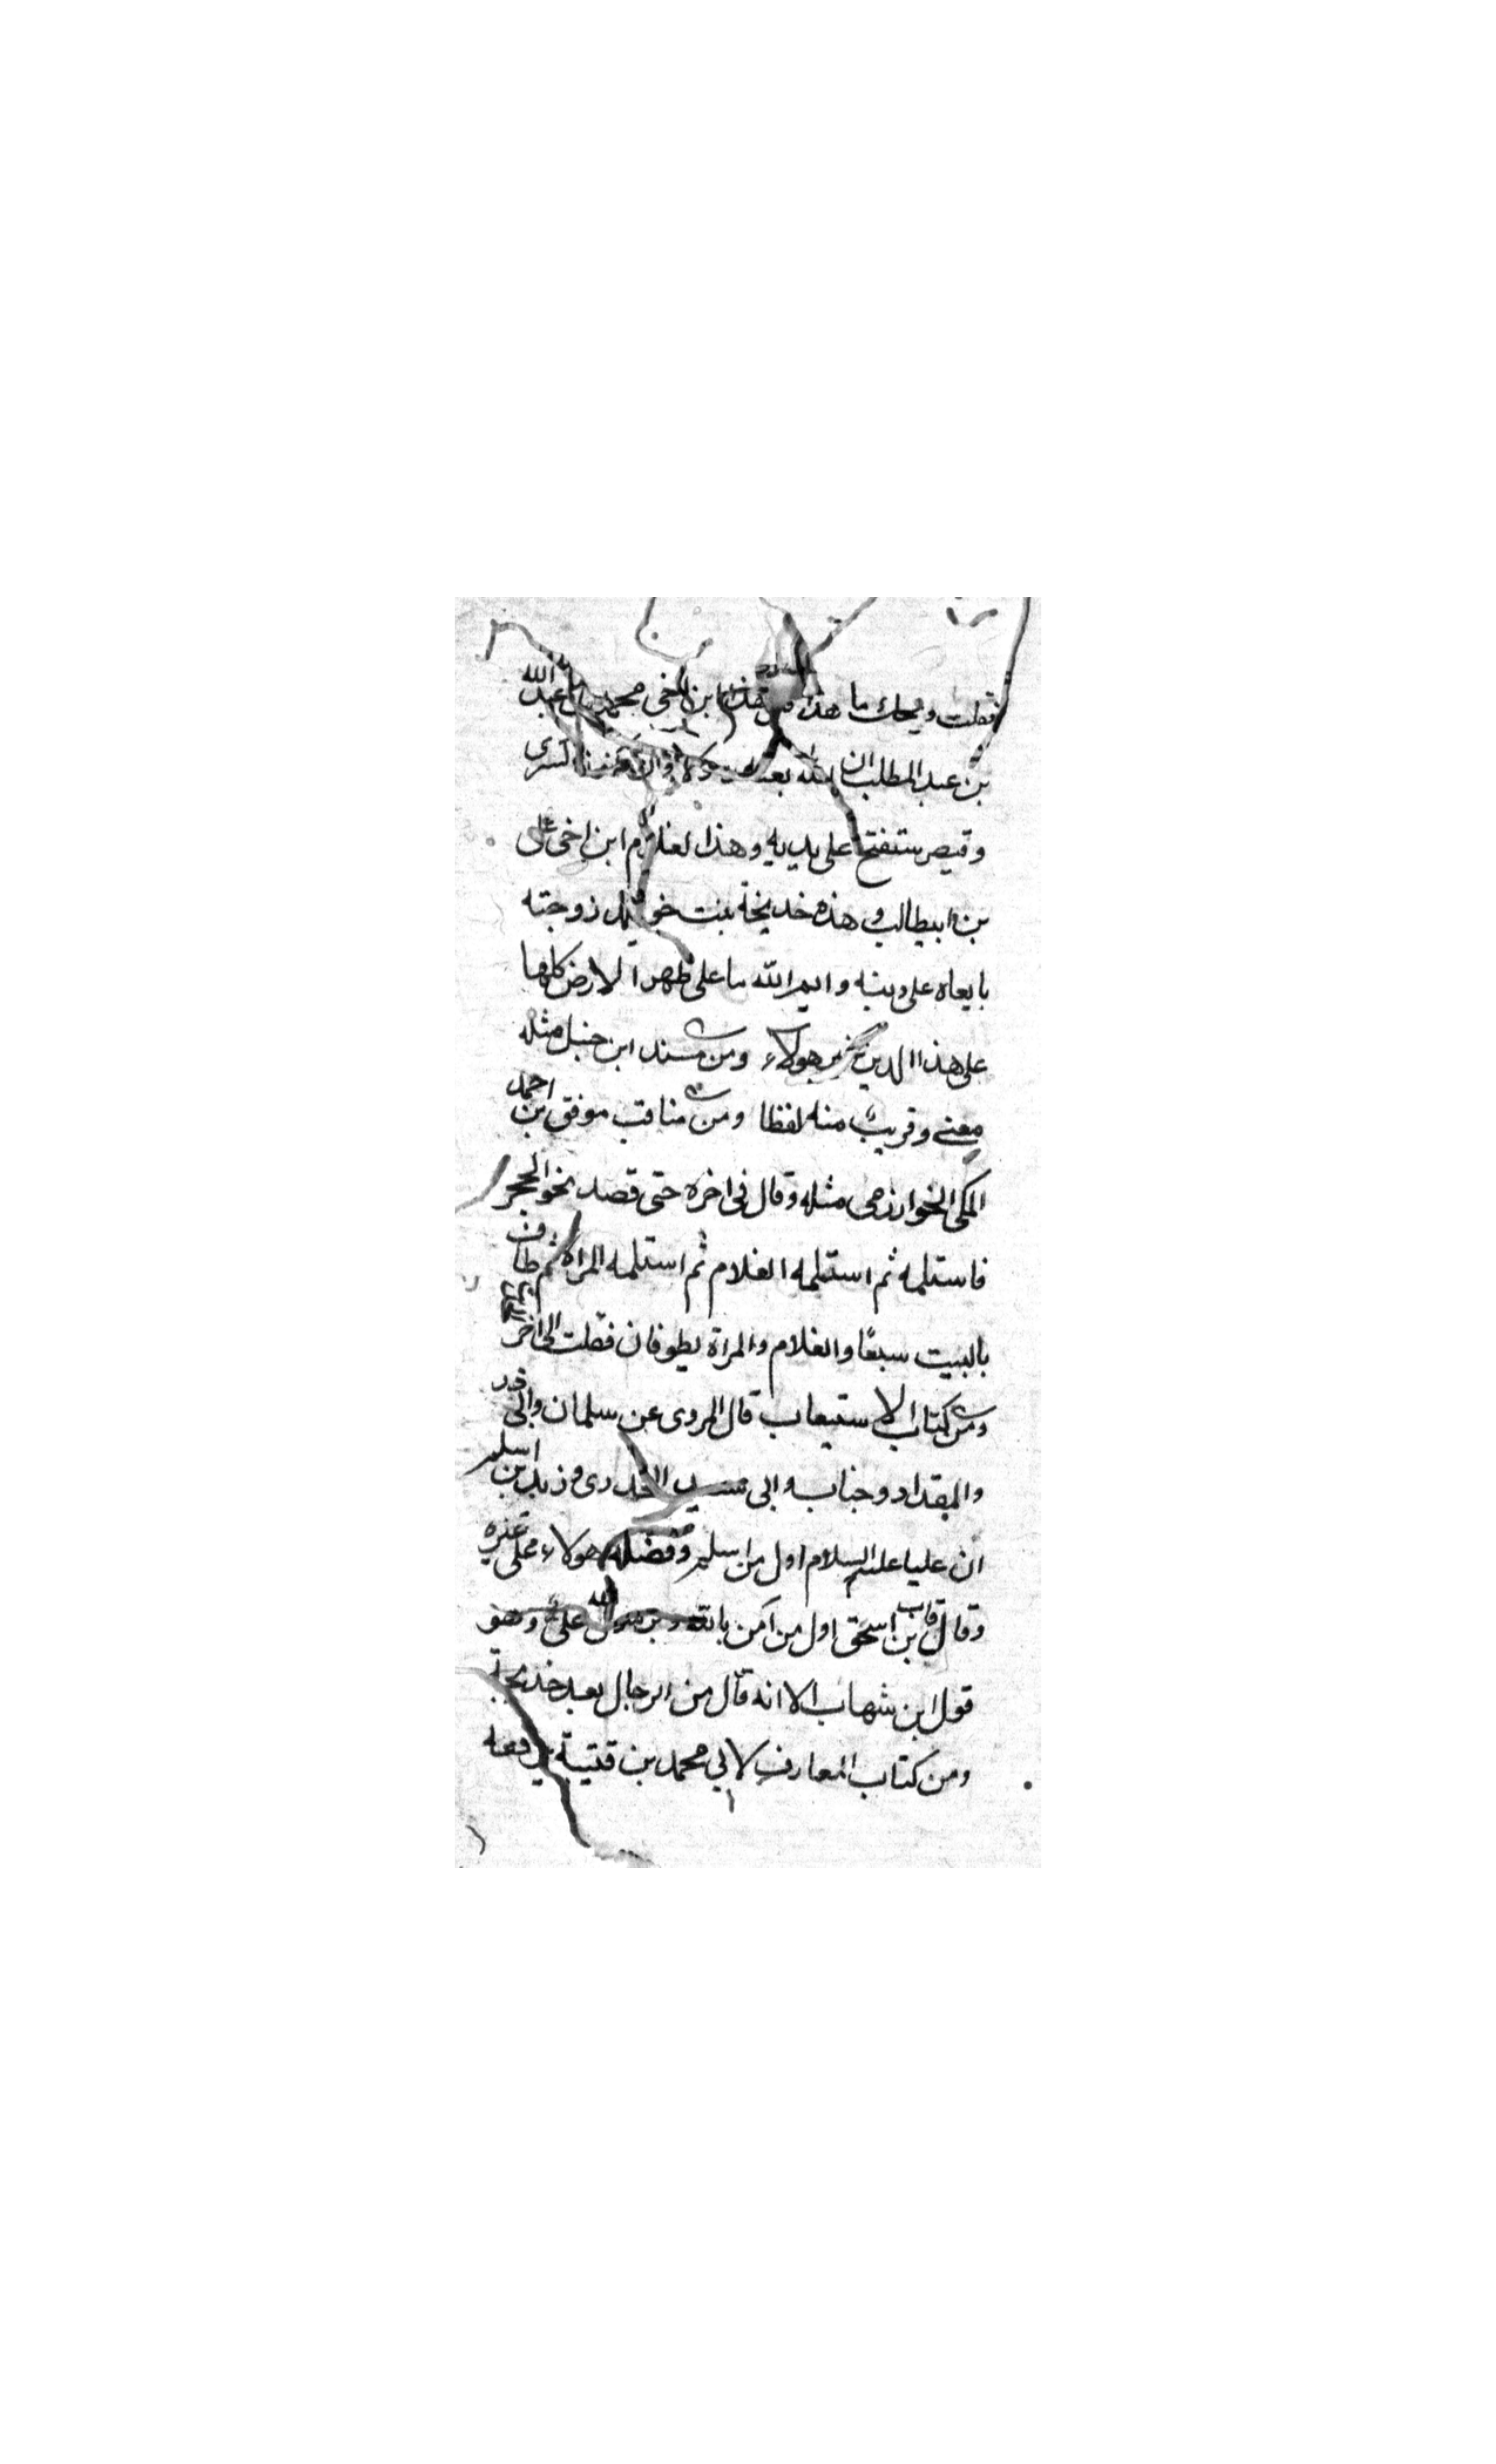 فقلت ويحك ما هذا هذا ابن اخى محمد بن عبد الله
بن عبد المطلب ان الله بعثه كسرى
وقيصر ستفتح على يديه وهذا لغلام ابن اخى على
بن ابيطالب و هذه خديجة بنت خويلد زوجته
بايعاه على دينه وايم الله ما على ظهر الارض كلها
على هذا الدين غير هولاء ومن مسند ابن حنبل مثله
معنى وقريب منه لفظا ومن مناقب موفق ابن احمد
المكى الخوارزمى مثله وقال فى اخره حتى قصد نحو الحجر
فاستلمه ثم استلمه الغلام ثم استلمه المراة ثم طاف
بالبيت سبعًا والغلام والمراة يطوفان فقلت الى اخر
ومن كتاب الاستيعاب قال المروى عن سلمان وابى ذر
والمقداد وخباب وابى سعيد الخدرى وزيد بن اسلم
ان عليا عليه السلام اول من اسلم وفضله هولاء على غيره
وقال ابن اسحق اول من آمن بالله وبرسول الله على وهو
قول ابن شهاب الا انه قال من الرجال بعد خديجة
ومن كتاب المعارف لابي محمد بن قتيبة يرفعه